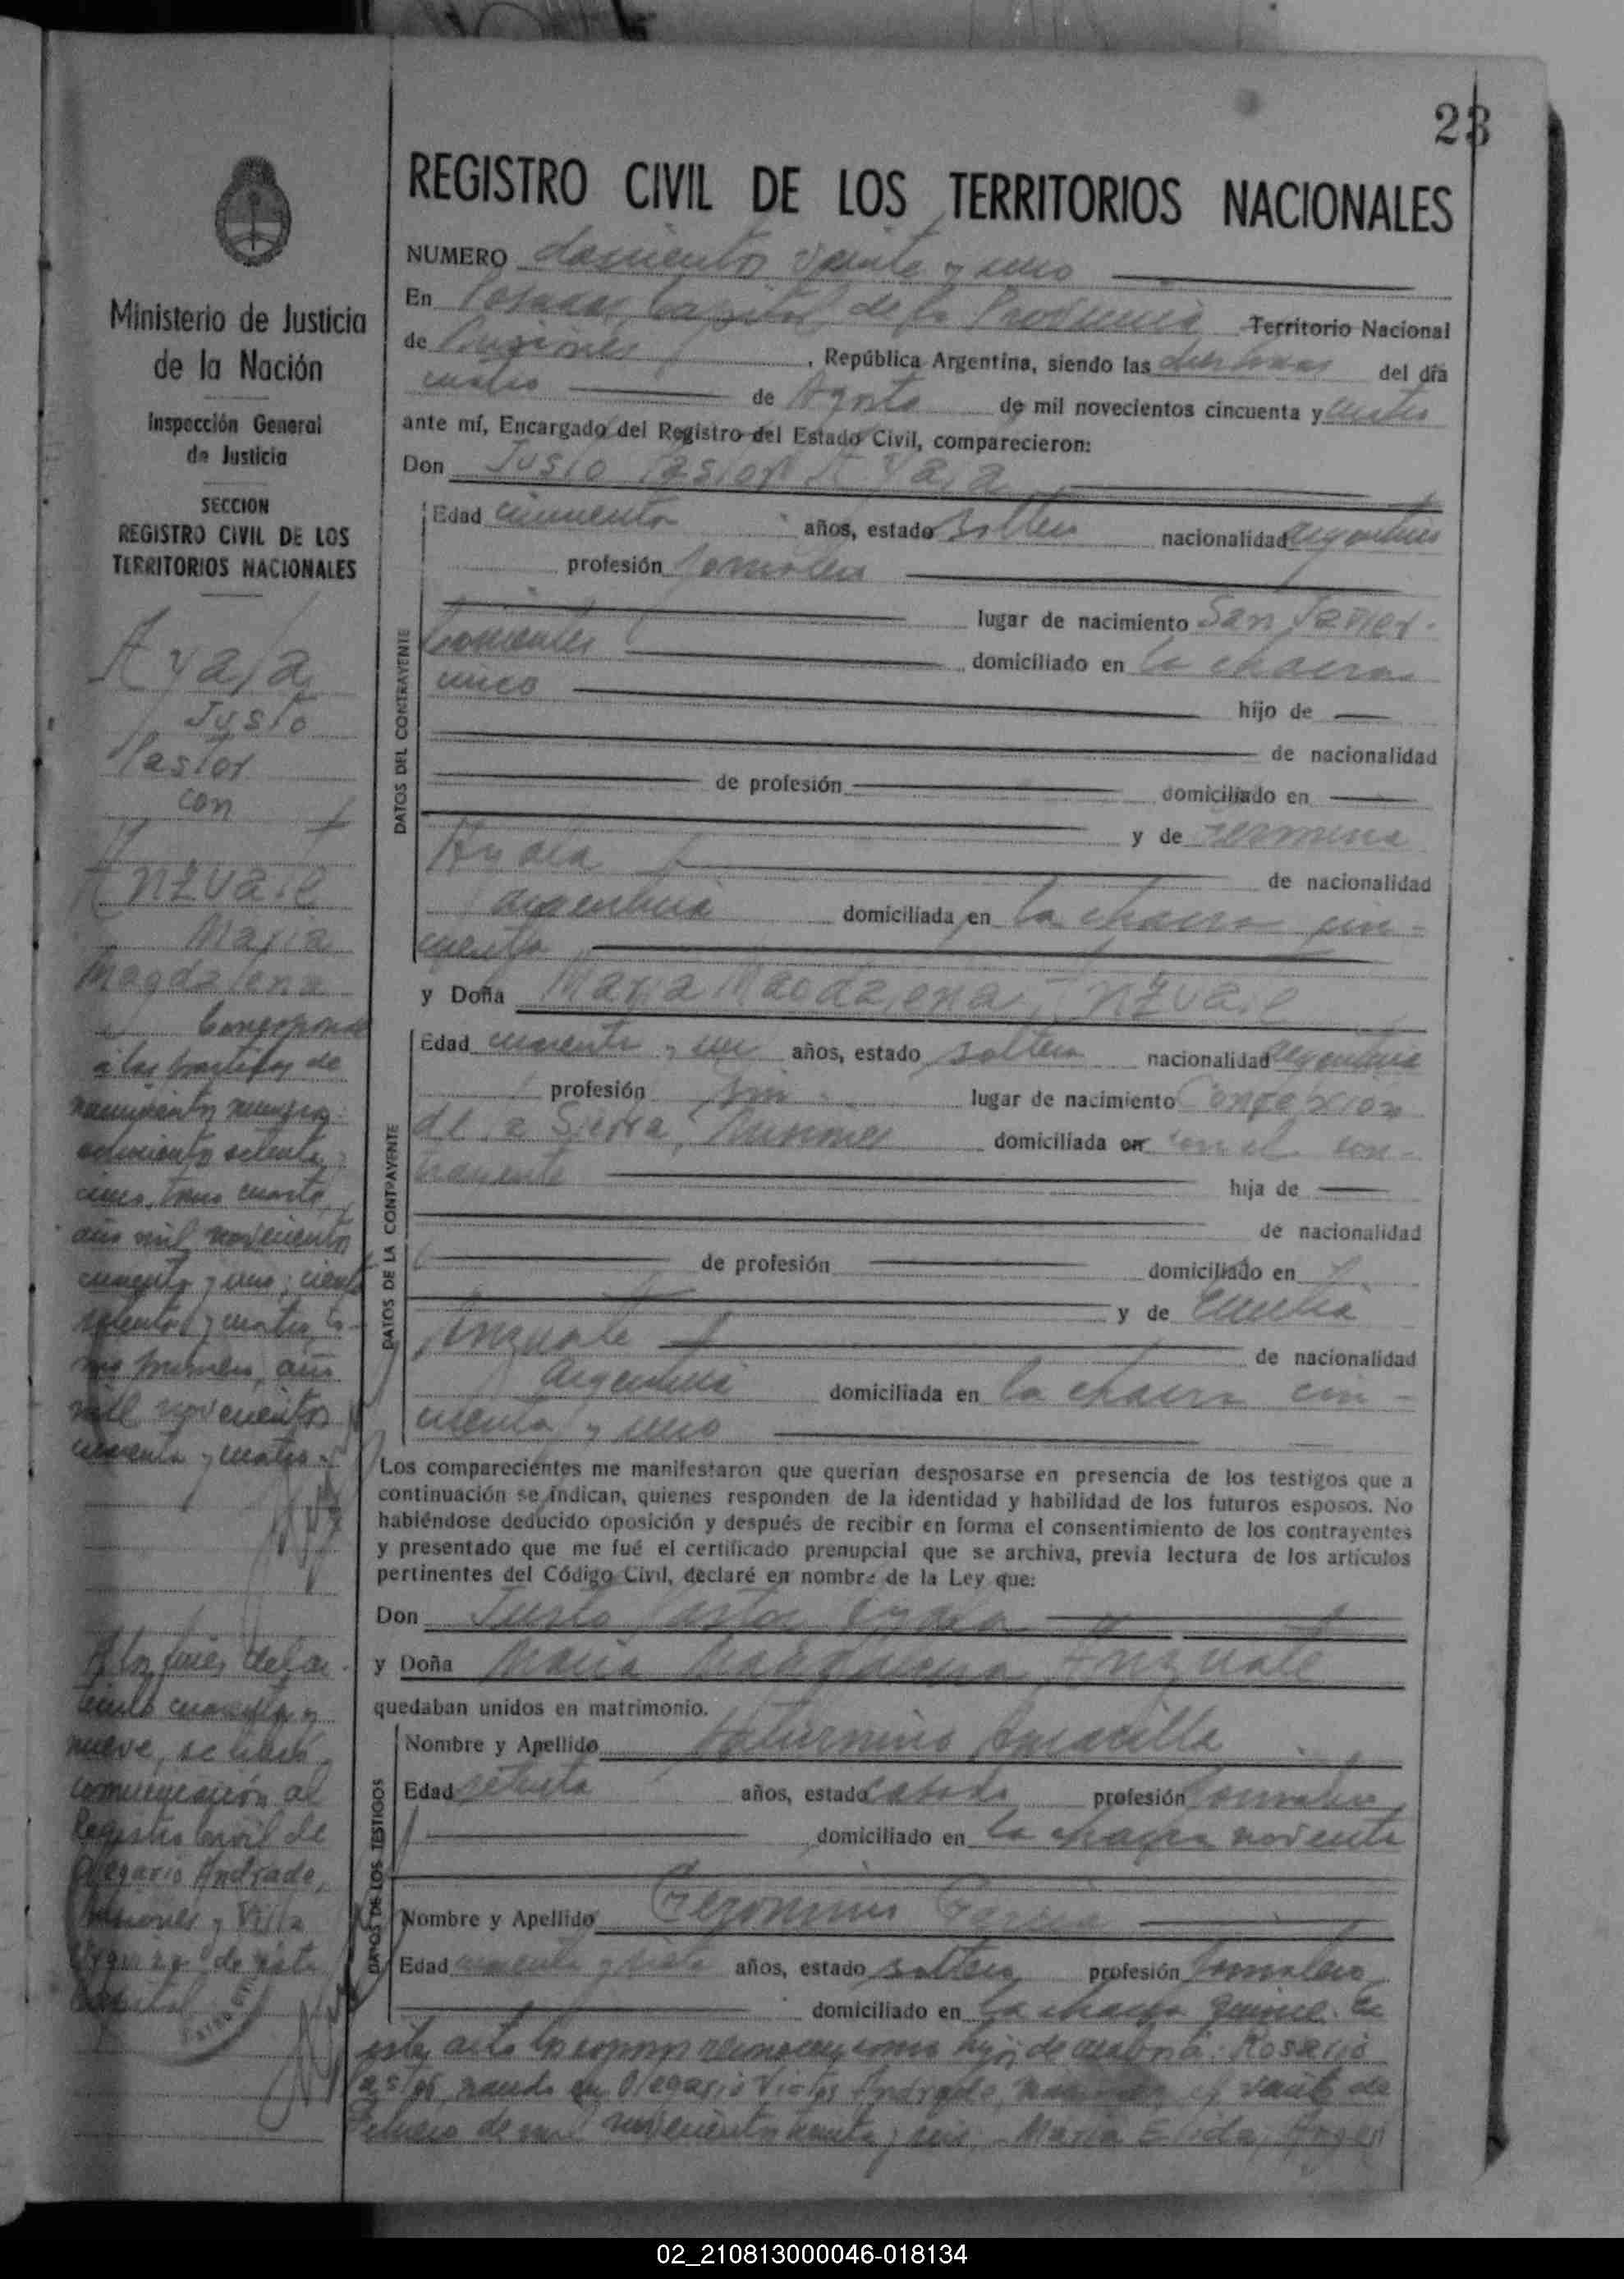 23
REGISTRO CIVIL DE LOS TERRITORIOS NACIONALES
Ministerio de Justicia
de la Nación
Inspección General
de Justicia
SECCION
REGISTRO CIVIL DE LOS
TERRITORIOS NACIONALES
Ayala
Justo
Pastor
con
Anzuate
Maria
Magdalena
Corresponde
a las partidas de
cinco, tomo cuarto,
año mil novecientos
cincuenta y uno; ciento
setenta y cuatro, to-
mo primero, año
mil novecientos
cincuenta y cuatro.
A los fines del ar-
tículo cuarenta y
nueve, se hará
comunicación al
Registro Civil de
Olegario Andrade,
Misiones y Villa
Urquiza de esta
Capital
NUMERO doscientos veinte y uno
En Posadas, Capital de la Provincia Territorio Nacional
de Misiones, República Argentina, siendo las diez horas del día
cuatro de Agosto de mil novecientos cincuenta y cuatro
ante mí, Encargado del Registro del Estado Civil, comparecieron:
Don Justo Pastor Ayala
DATOS DEL CONTRAYENTE
Edad cincuenta años, estado soltero nacionalidad argentino
profesión jornalero
lugar de nacimiento San Javier-
Corrientes domiciliado en la chacra
hijo de
de nacionalidad
de profesión domiciliado en
y de Fermina
Ayala de nacionalidad
argentina domiciliada en la chacra cin-
cuenta
y Doña Maria Magdalena Anzuate
DATOS DE LA CONTRAYENTE
Edad cuarenta y un años, estado soltera nacionalidad argentina
profesión sin lugar de nacimiento Concepción
de la Sierra, Misiones domiciliada en con el con-
trayente hija de
de nacionalidad
de profesión domiciliado en
y de Emilia
Anzuate de nacionalidad
argentina domiciliada en la chacra cin-
cuenta y uno
Los comparecientes me manifestaron que querían desposarse en presencia de los testigos que a
continuación se indican, quienes responden de la identidad y habilidad de los futuros esposos. No
habiéndose deducido oposición y después de recibir en forma el consentimiento de los contrayentes
y presentado que me fué el certificado prenupcial que se archiva, previa lectura de los artículos
pertinentes del Código Civil, declaré en nombre de la Ley que:
Don Justo Pastor Ayala
y Doña Maria Magdalena Anzuate
quedaban unidos en matrimonio.
DATOS DE LOS TESTIGOS
Nombre y Apellido Saturnino Amarilla
Edad setenta años, estado casado profesión jornalero
domiciliado en la chacra noventa
Nombre y Apellido Geronimo
Edad años, estado soltero profesión jornalero
domiciliado en la chacra quince. En
este acto los esposos reconocen como hijos de ambos a: Rosario
Pastor, nacido en Olegario Victor Andrade, el veinte de
Febrero de mil novecientos treinta y seis; Maria Elida, Angel
02_210813000046-018134